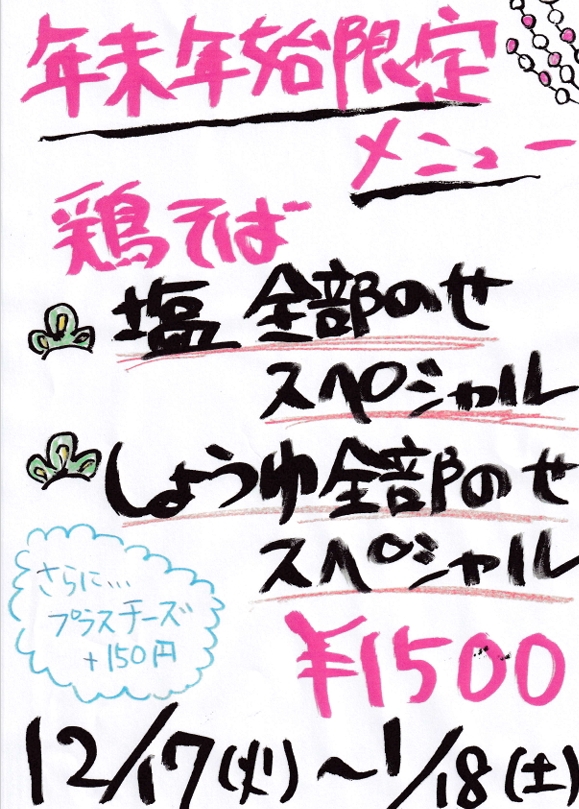 年末年始限定
メニュー
鶏そば
塩 全部のせ
スペシャル
しょうゆ全部のせ
スペシャル
さらに...
プラスチーズ
+150円
¥1500
12/17(火)～1/18(土)